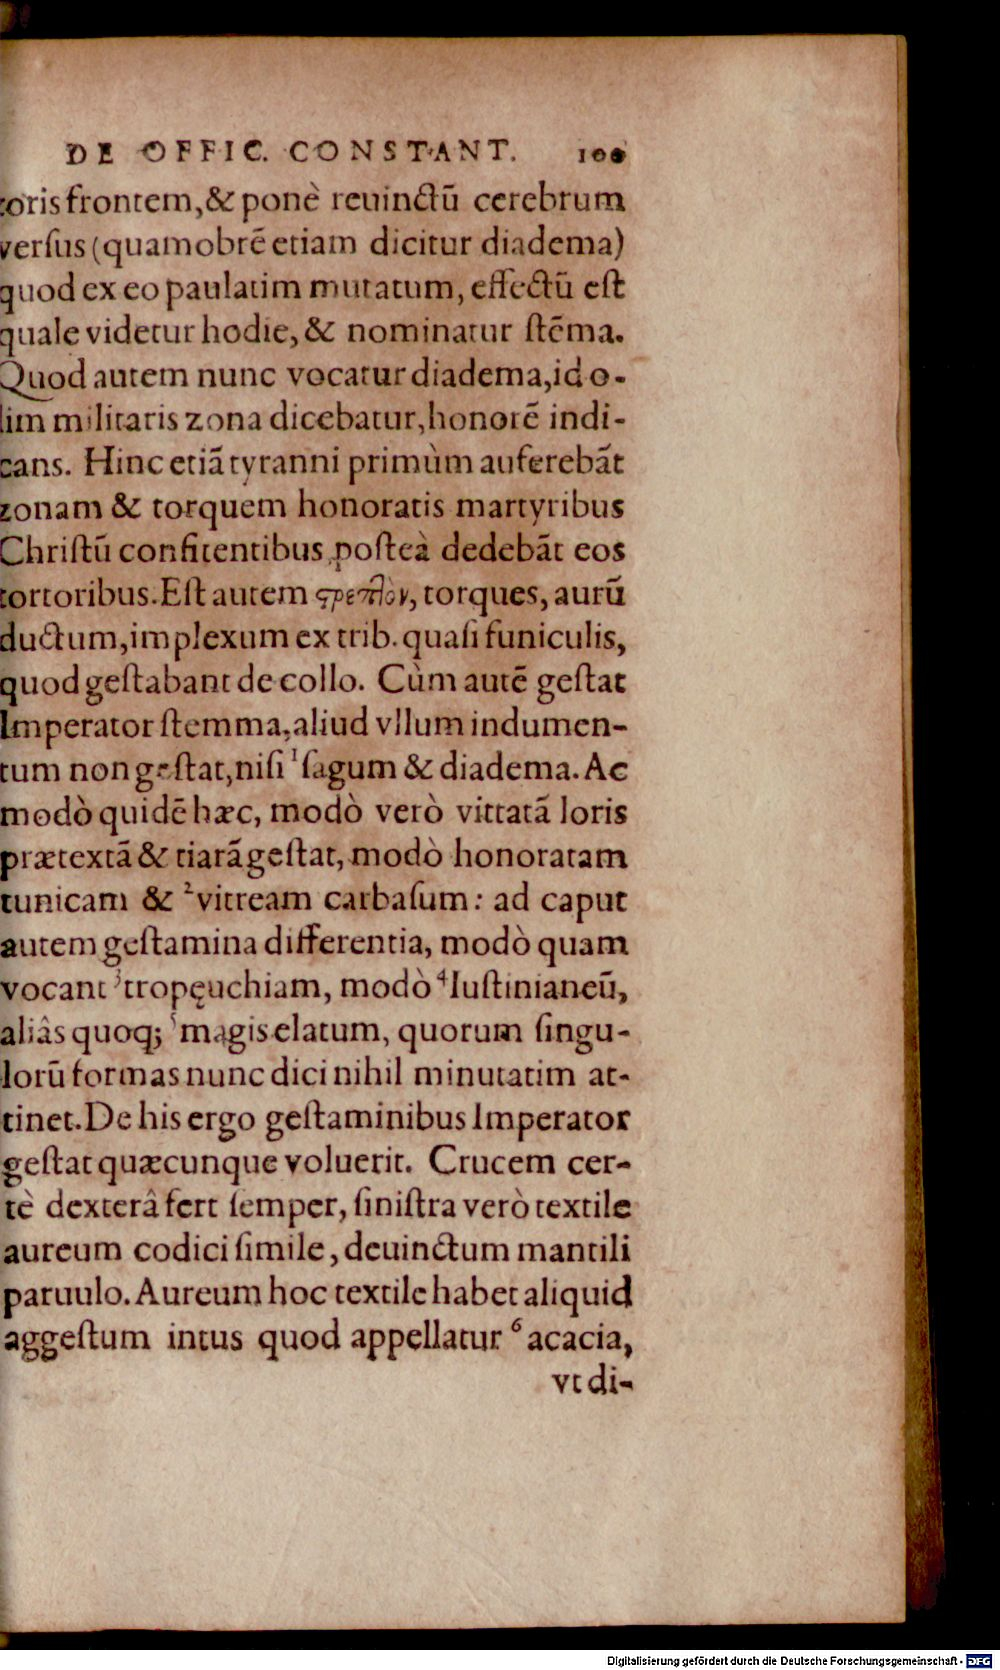 DE OFFIC. CONSTANT. 100
toris frontem, & ponè reuinctū cerebrum
versus (quamobrē etiam dicitur diadema)
quod ex eo paulatim mutatum, effectū est
quale videtur hodie, & nominatur stēma.
Quod autem nunc vocatur diadema, id o-
lim militaris zona dicebatur, honorē indi-
cans. Hinc etiā tyranni primùm auferebāt
zonam & torquem honoratis martyribus
Christū confitentibus, posteà dedebāt eos
tortoribus. Est autem ϛρεπτὸν, torques, aurū
ductum, implexum ex trib. quasi funiculis,
quod gestabant de collo. Cùm autē gestat
Imperator stemma, aliud vllum indumen-
tum non gestat, nisi ¹sagum & diadema. Ac
modò quidē hæc, modò verò vittatā loris
prætextā & tiarā gestat, modò honoratam
tunicam & ²vitream carbasum: ad caput
autem gestamina differentia, modò quam
vocant ³tropęuchiam, modò ⁴Iustinianeū,
aliâs quoq; ⁵magis elatum, quorum singu-
lorū formas nunc dici nihil minutatim at-
tinet. De his ergo gestaminibus Imperator
gestat quæcunque voluerit. Crucem cer-
tè dexterâ fert semper, sinistra verò textile
aureum codici simile, deuinctum mantili
paruulo. Aureum hoc textile habet aliquid
aggestum intus quod appellatur ⁶acacia,
vt di-
Digitalisierung gefördert durch die Deutsche Forschungsgemeinschaft - DFG